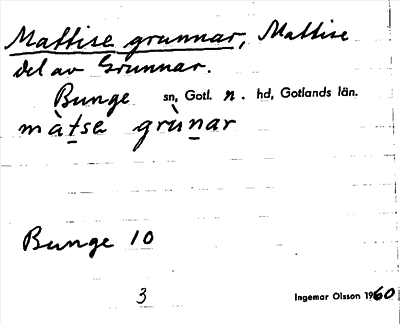 Mattise grunnar, Mattise
del av Grunnar.
Bunge sn, Gotl. n. hd, Gotlands län.
màtse grùnar
Bunge 10
3
Ingemar Olsson 1960